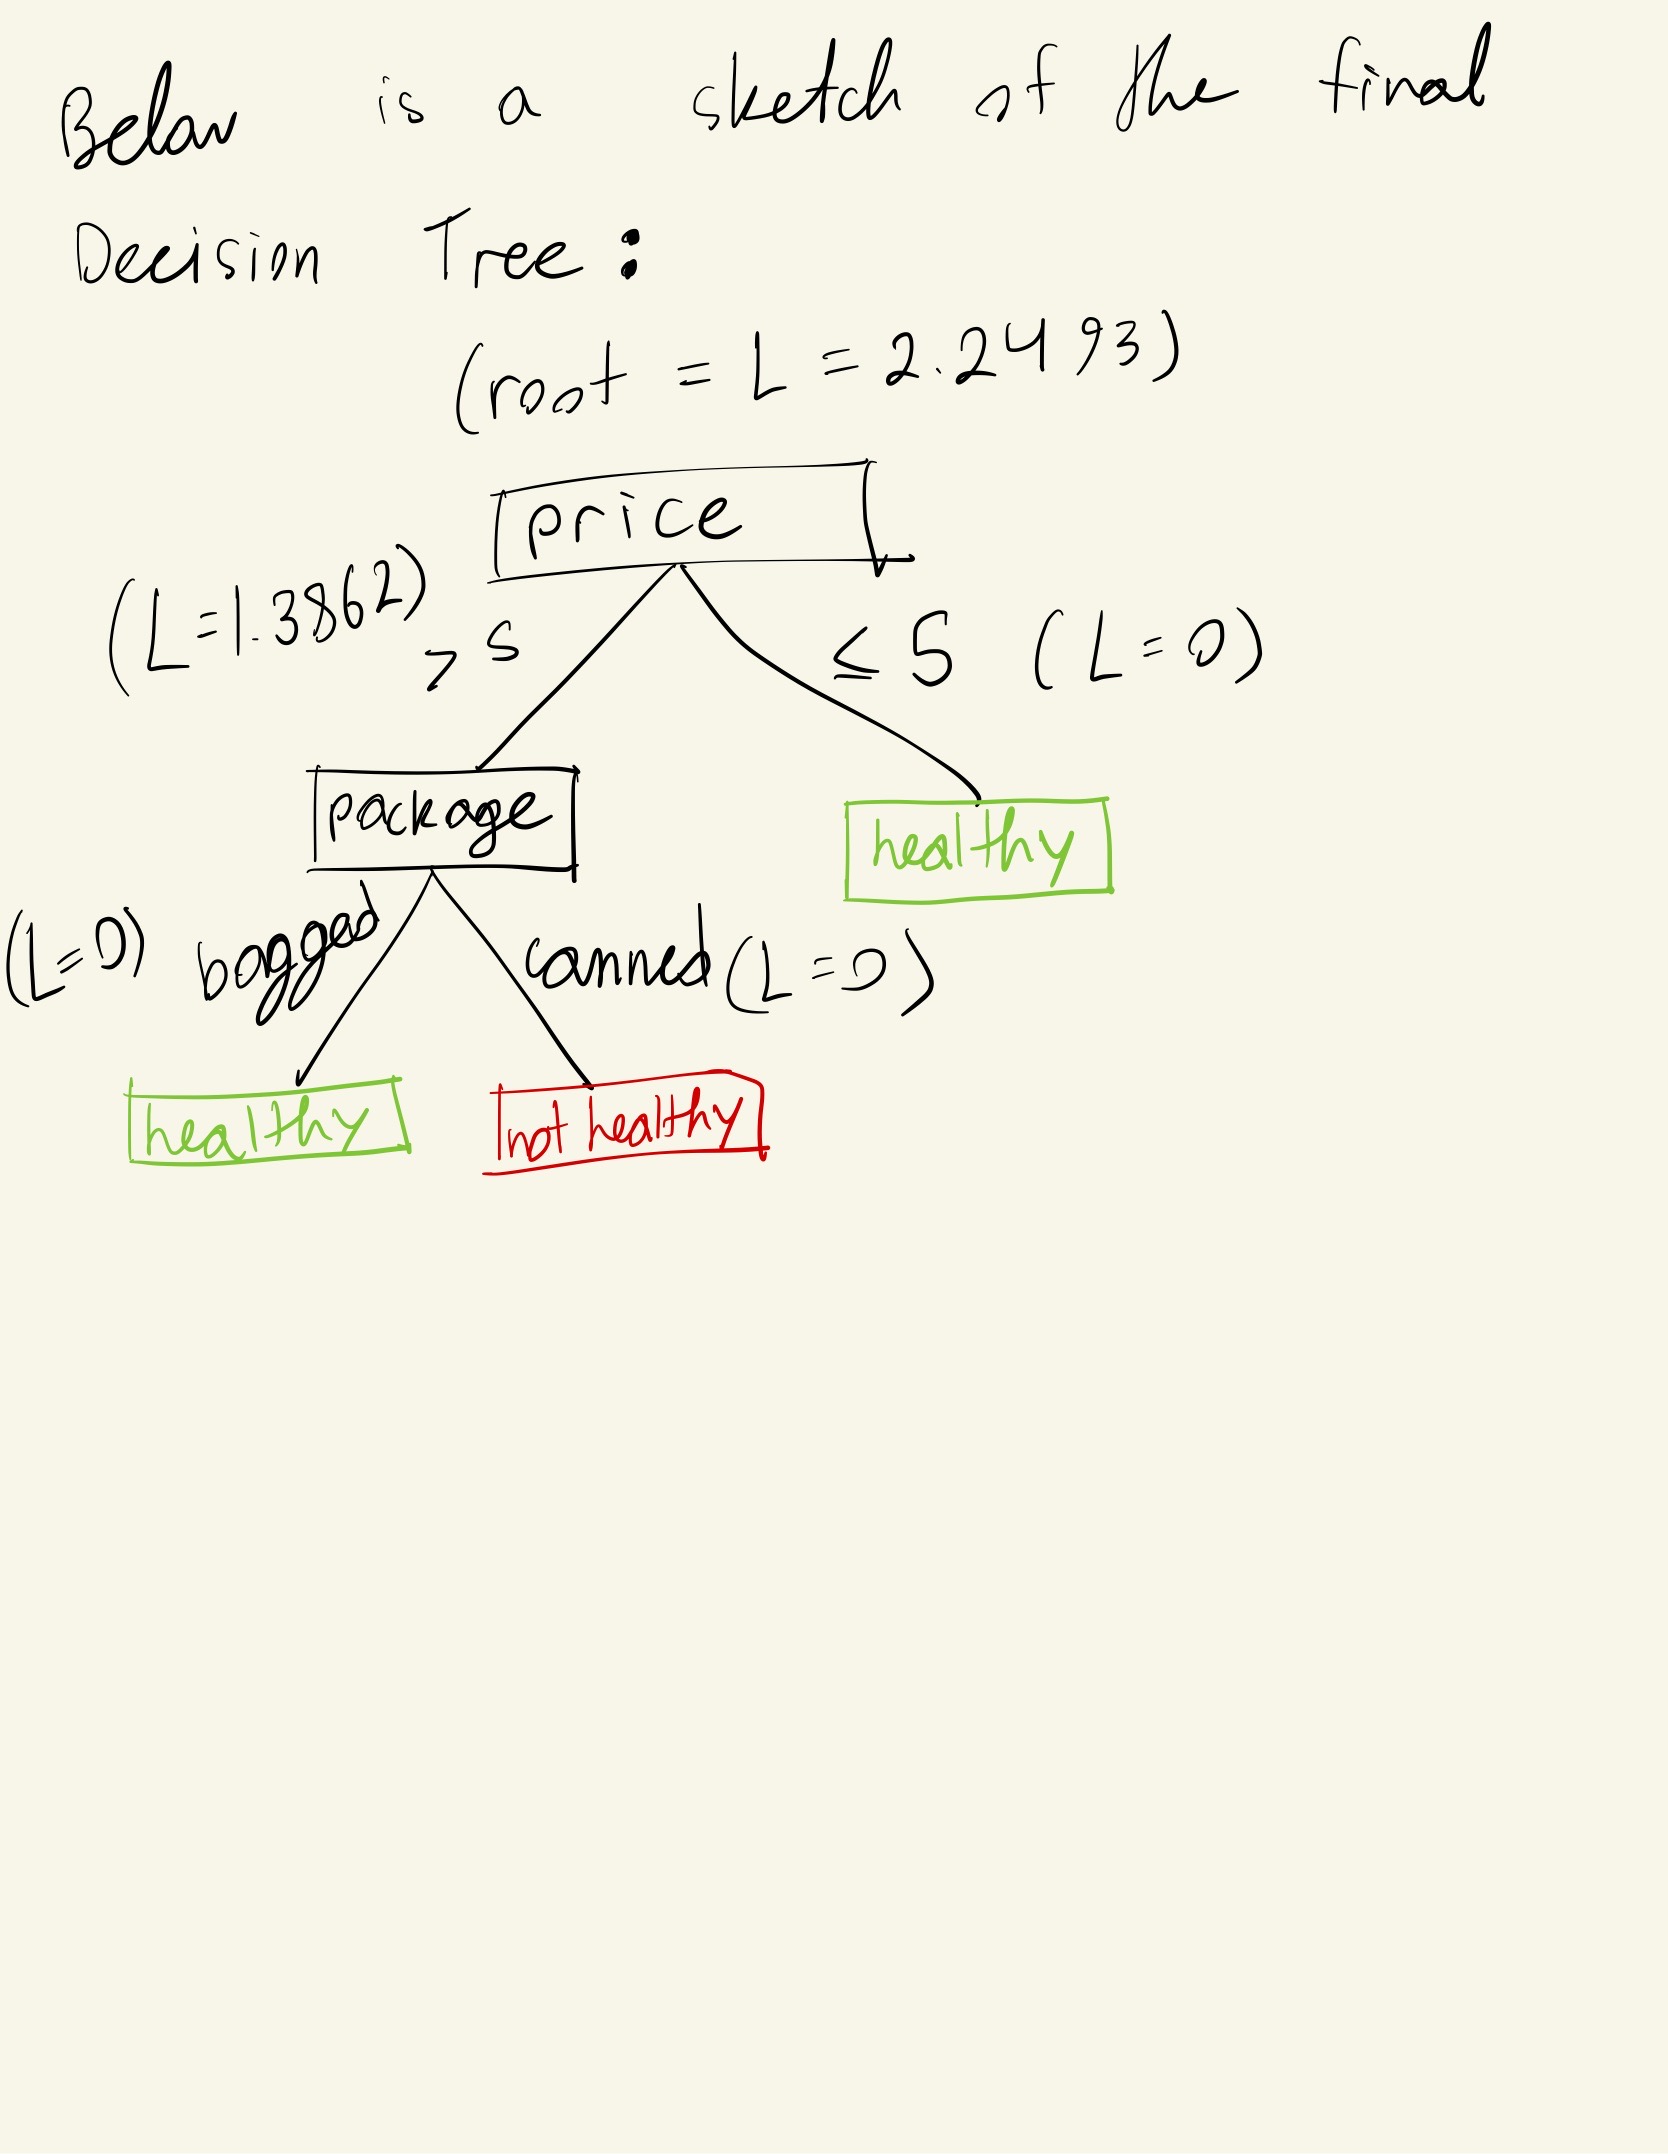 Below is a sketch of the final
Decision Tree:
(root = L = 2.2493)
price
(L=1.3862) > 5
≤ 5 (L=0)
package
healthy
(L=0) bagged
canned (L=0)
healthy
not healthy